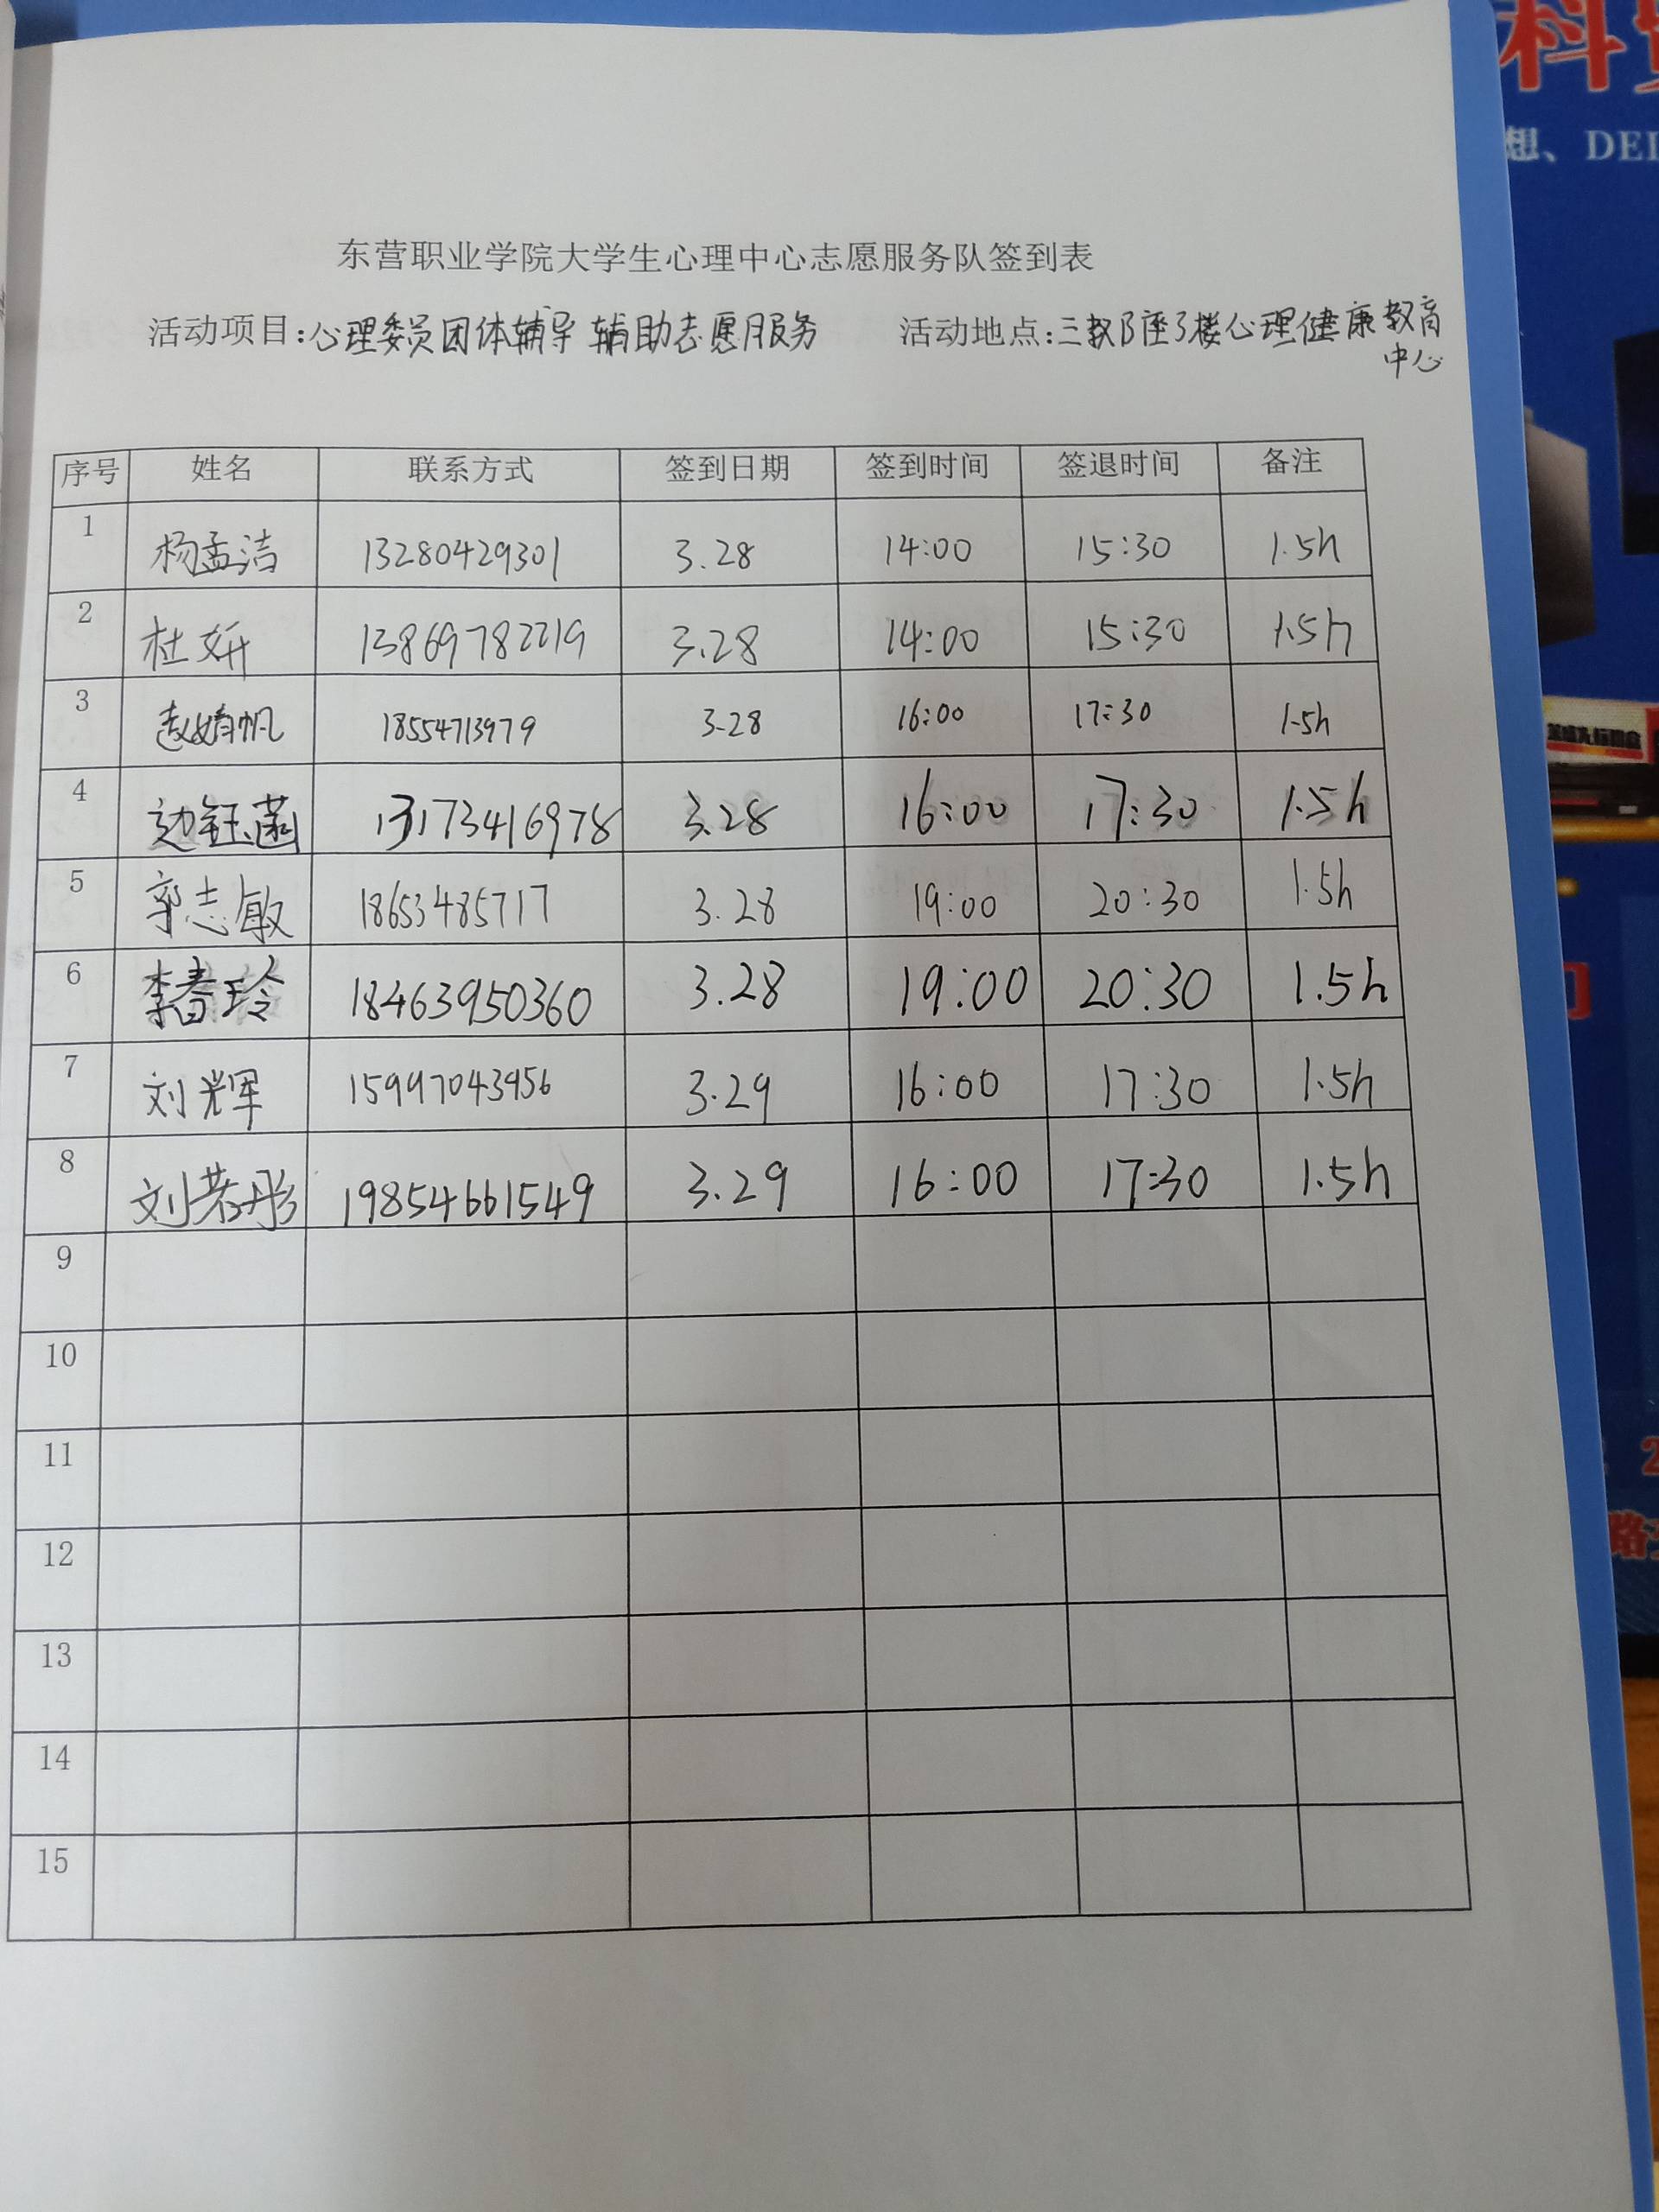 东营职业学院大学生心理中心志愿服务队签到表
活动项目:心理委员团体辅导 辅助志愿服务 活动地点:三教B座3楼心理健康教育
中心
序号 姓名 联系方式 签到日期 签到时间 签退时间 备注
1 杨孟洁 13280429301 3.28 14:00 15:30 1.5h
2 杜妍 13869782219 3.28 14:00 15:30 1.5h
3 赵婧帆 18554713979 3.28 16:00 17:30 1.5h
4 边钰菡 13173416978 3.28 16:00 17:30 1.5h
5 郭志敏 18653485717 3.28 19:00 20:30 1.5h
6 李春玲 18463950360 3.28 19:00 20:30 1.5h
7 刘辉 15997043956 3.29 16:00 17:30 1.5h
8 刘若彤 19854661549 3.29 16:00 17:30 1.5h
9
10
11
12
13
14
15
科
想、DEL
2
路